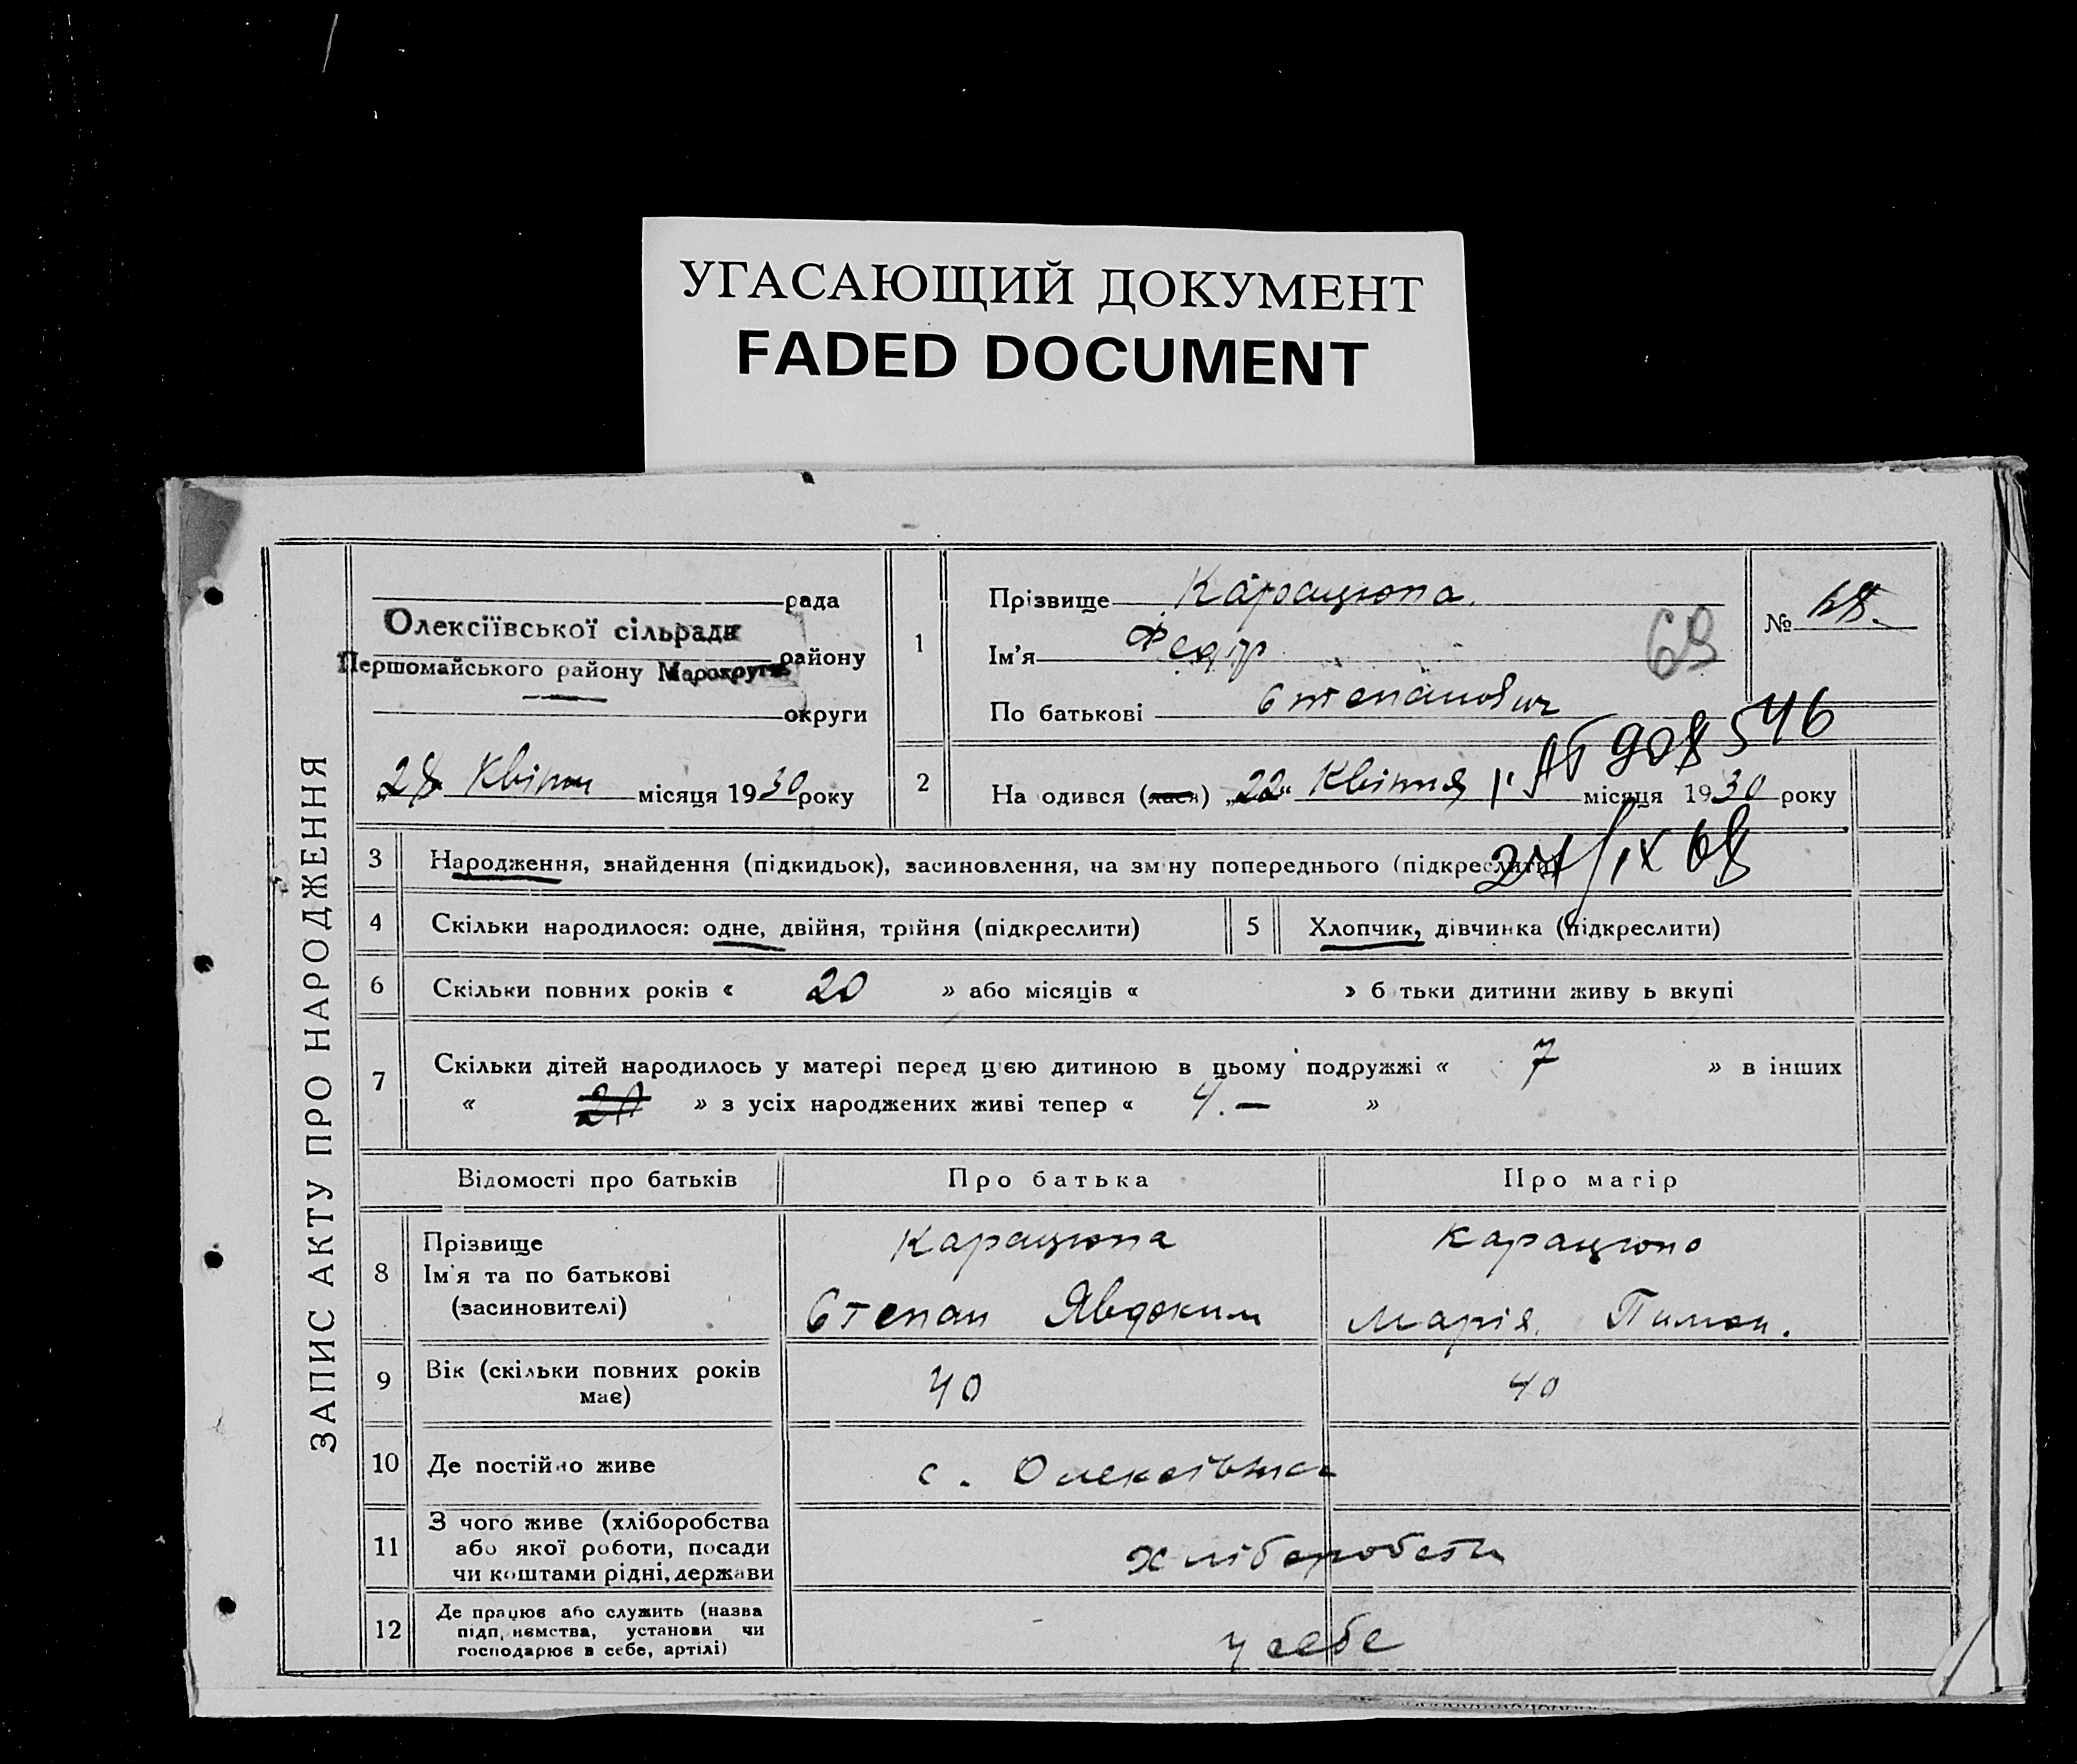 УГАСАЮЩИЙ ДОКУМЕНТ
FADED DOCUMENT
ЗАПИС АКТУ ПРО НАРОДЖЕННЯ
рада
Олексіївської сільради
району
Першомайського району
округи
Квітн місяця 1930 року
1
Прізвище Карацюпа.
Ім'я Федір
По батькові Степанович
69
№
2
На одився (лася) „22“ Квітня місяця 1930 року
АБ 908546
IX 68
3 Народження, знайдення (підкидьок), засиновлення, на зм ну попереднього (підкреслити)
4 Скільки народилося: одне, двійня, трійня (підкреслити)
5 Хлопчик, дівчинка (підкреслити)
6 Скільки повних років « 20 » або місяців « » б тьки дитини живу ь вкупі
7 Скільки дітей народилось у матері перед цією дитиною в цьому подружжі « 7 » в інших
« » з усіх народжених живі тепер « 4. — »
Відомості про батьків Про батька Про матір
8 Прізвище Карацюпа Карацюпа
Ім'я та по батькові
(засиновителі) Степан Явдоким Марія Пимон.
9 Вік (скільки повних років має) 40 40
10 Де постійно живе с. Олексіївка
11 З чого живе (хліборобства
або якої роботи, посади
чи коштами рідні, держави хліборобств
12 Де працює або служить (назва
підп, иємства, установи чи
господарює в себе, артілі) у себе